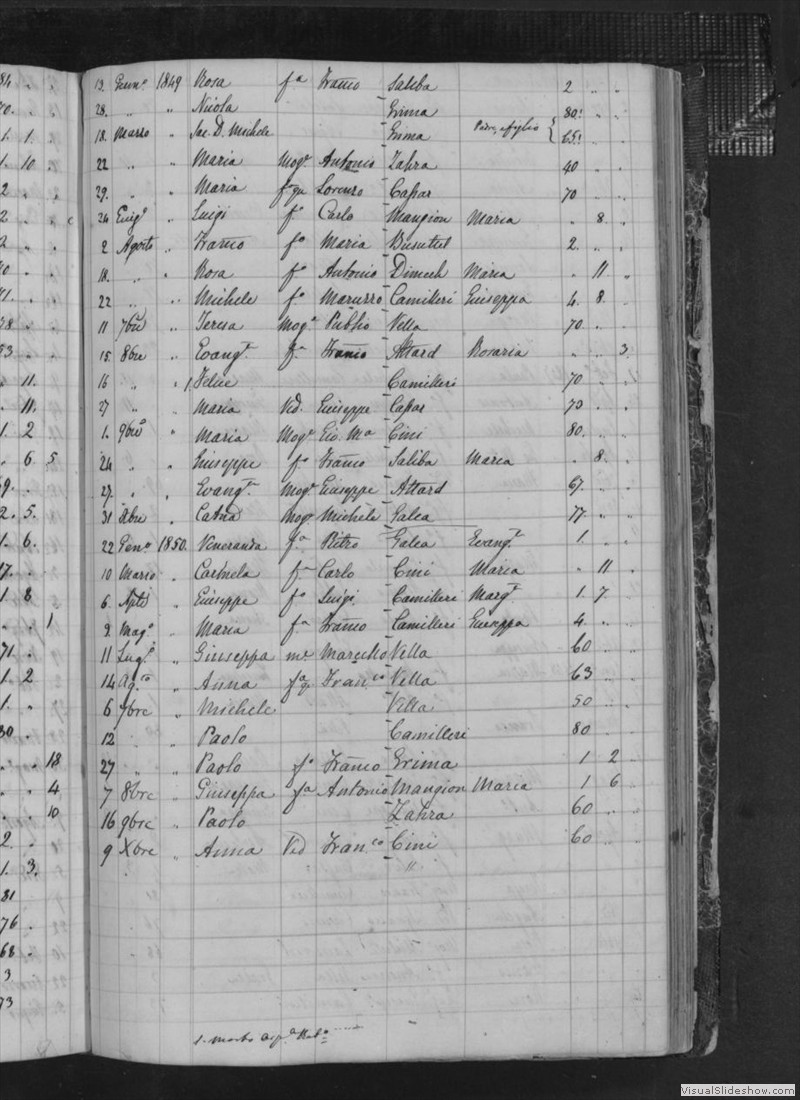 84
13. Genn.o 1849 Rosa fa Franco Saliba 2 " "
70. 28. " " Nicola Grima 80! " "
1. 1. 18. Marzo " Sac. D. Michele Grima Padre, e figlio 65! " "
1. 10 22 " " Maria Moge Antonio Zahra 40 " "
2 29. " " Maria fa qm Lorenzo Caspar 70 " "
2 " c 24 Giug.o " Luigi fo Carlo Mangion Maria " 8. "
2 2 Agosto " Franco fo Maria Busuttil 2. " "
" " Rosa fa Antonio Dimech Maria " 11 "
22 " " Michele fo Maruzzo Camilleri Giuseppa 4. 8. "
11 7bre " Teresa Moge Publio Vella 70. " "
15. 8bre " Evang.ta fa Franco Attard Rosaria " " 3.
11. 16 " " Felice Camilleri 70 " "
11. 27 " " Maria Ved. Giuseppe Caspar 73 " "
1. 2 1. 9bre " Maria Moge Gio. Ma Cini 80. " "
6 5 24 " " Giuseppe fo Franco Saliba Maria " 8. "
27. " " Evang.ta moge Giuseppe Attard 67. " "
2. 5. 31 Xbre " Catna moge Michele Galea 77. " "
1. 6. 22 Genn.o 1850. Veneranda fa Pietro Galea Evang.ta 1. " "
17. 10 Marzo " Carmela fa Carlo Cini Maria " 11 "
1 8 6 Aple " Giuseppe fo Luigi Camilleri Marg.ta 1 7
1 9. Mag.o " Maria fa Franco Camilleri Giuseppa 4 " "
71. 11 Lug.o " Giuseppa me Marcello Vella 60 " "
1. 2 14 Ag.to " Anna fa qm Fran.co Vella 63
1. 6 7bre " Michele Vella 50
30 12 " " Paolo Camilleri 80
18 27 " " Paolo fo Franco Grima 1 2
4 7 8bre " Giuseppa fa Antonio Mangion Maria 1 6
10 16 9bre " Paolo Zahra 60
2. 9 Xbre " Anna Ved Fran.co Cini 60
1. 3. "
81
76
68
3
73
VisualSlideshow.com